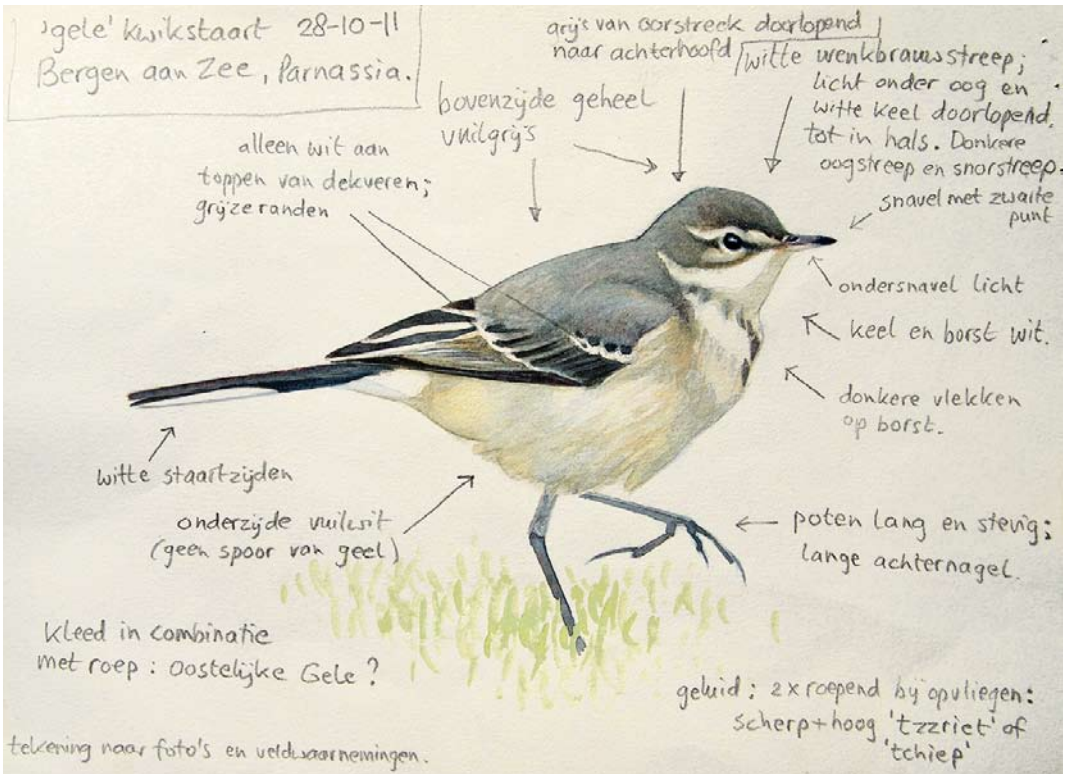 'gele' kwikstaart 28-10-11
Bergen aan Zee, Parnassia.
grijs van oorstreek doorlopend
naar achterhoofd
witte wenkbrauwstreep;
licht onder oog en
witte keel doorlopend
tot in hals. Donkere
oogstreep en snorstreep.
bovenzijde geheel
vuilgrijs
alleen wit aan
toppen van dekveren;
grijze randen
snavel met zwarte
punt
ondersnavel licht
keel en borst wit.
donkere vlekken
op borst.
witte staartzijden
onderzijde vuilwit
(geen spoor van geel)
poten lang en stevig;
lange achternagel.
Kleed in combinatie
met roep: Oostelijke Gele?
geluid: 2x roepend bij opvliegen:
scherp+hoog 'tzzriet' of
'tchiep'
tekening naar foto's en veldwaarnemingen.